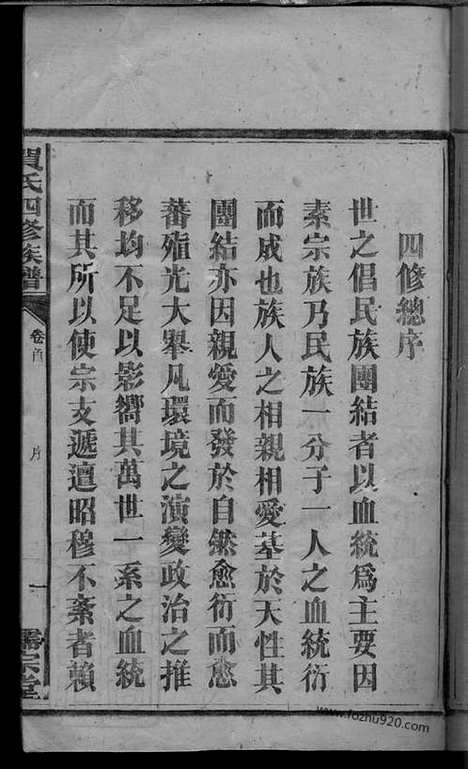 四修總序
世之倡民族團結者以血統爲主要因
素宗族乃民族一分子一人之血統衍
而成也族人之相親相愛基於天性其
團結亦因親愛而發於自然愈衍而愈
蕃殖光大舉凡環境之演變政治之推
移均不足以影嚮其萬世一系之血統
而其所以使宗支遞遭昭穆不紊者賴
賀氏四修族譜
卷首
序
一
儒宗堂
www.fozhu920.com